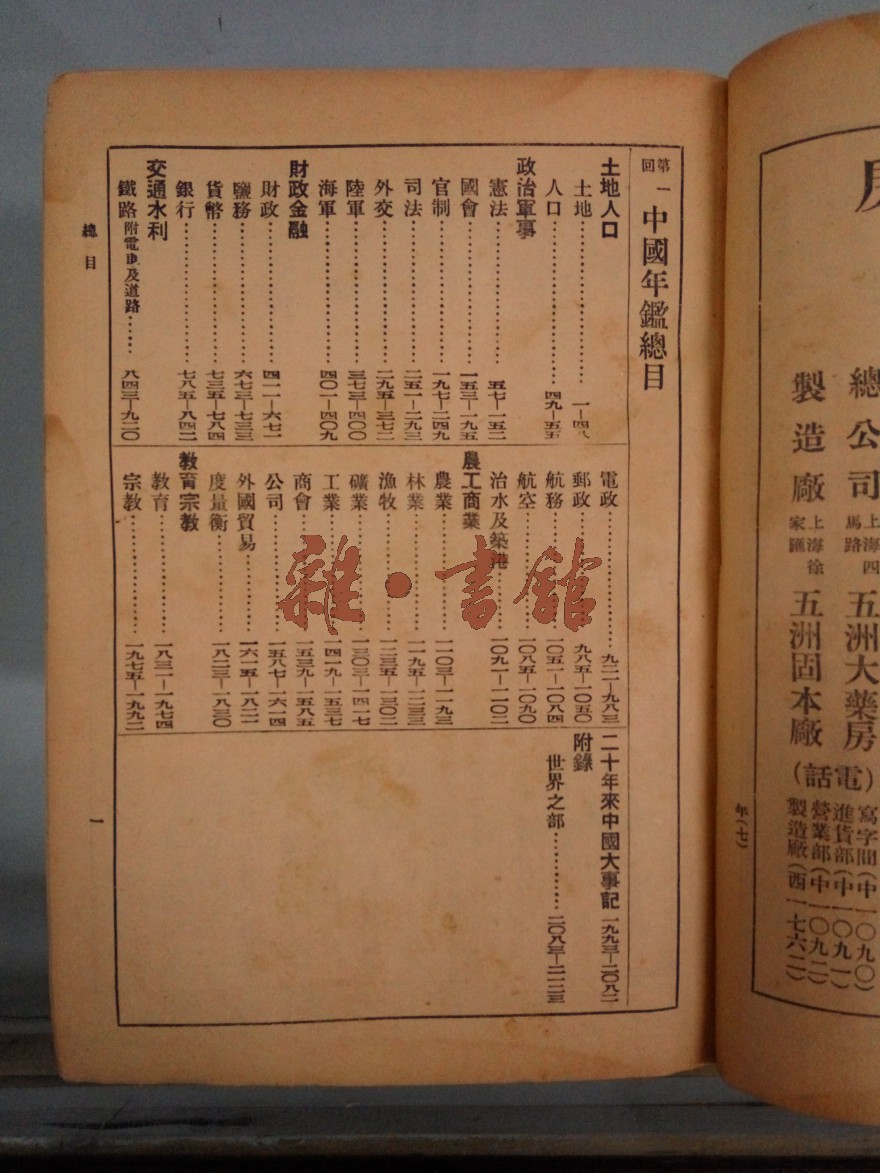 第一回中國年鑑總目
土地人口
土地…………一—四八
人口…………四九—五五
政治軍事
憲法…………五七—一五二
國會…………一五三—一九五
官制…………一九七—二四九
司法…………二五一—二九三
外交…………二九五—三七二
陸軍…………三七三—四〇〇
海軍…………四〇一—四〇九
財政金融
財政…………四一一—六七一
鹽務…………六七三—七三三
貨幣…………七三五—七八四
銀行…………七八五—八四二
交通水利
鐵路附電車及道路……八四三—九二〇
電政…………九二一—九八三
郵政…………九八五—一〇五〇
航務…………一〇五一—一〇八四
航空…………一〇八五—一〇九〇
治水及築港…………一〇九一—一一〇二
農工商業
農業…………一一〇三—一一九三
林業…………一一九五—一二三三
漁牧…………一二三五—一三〇二
礦業…………一三〇三—一四一七
工業…………一四一九—一五三七
商會…………一五三九—一五八五
公司…………一五八七—一六一四
外國貿易…………一六一五—一八二一
度量衡…………一八二三—一八三〇
教育宗教
教育…………一八三一—一九七四
宗教…………一九七五—一九九二
二十年來中國大事記一九九三—二〇八二
附錄
世界之部…………二〇八三—二一二三
總目
一
雜·書館
總公司上海四馬路五洲大藥房
製造廠上海徐家匯五洲固本廠
(電話)
寫字間(中一〇九〇)
進貨部(中一〇九一)
營業部(中一〇九二)
製造廠(西一七六二)
年(七)